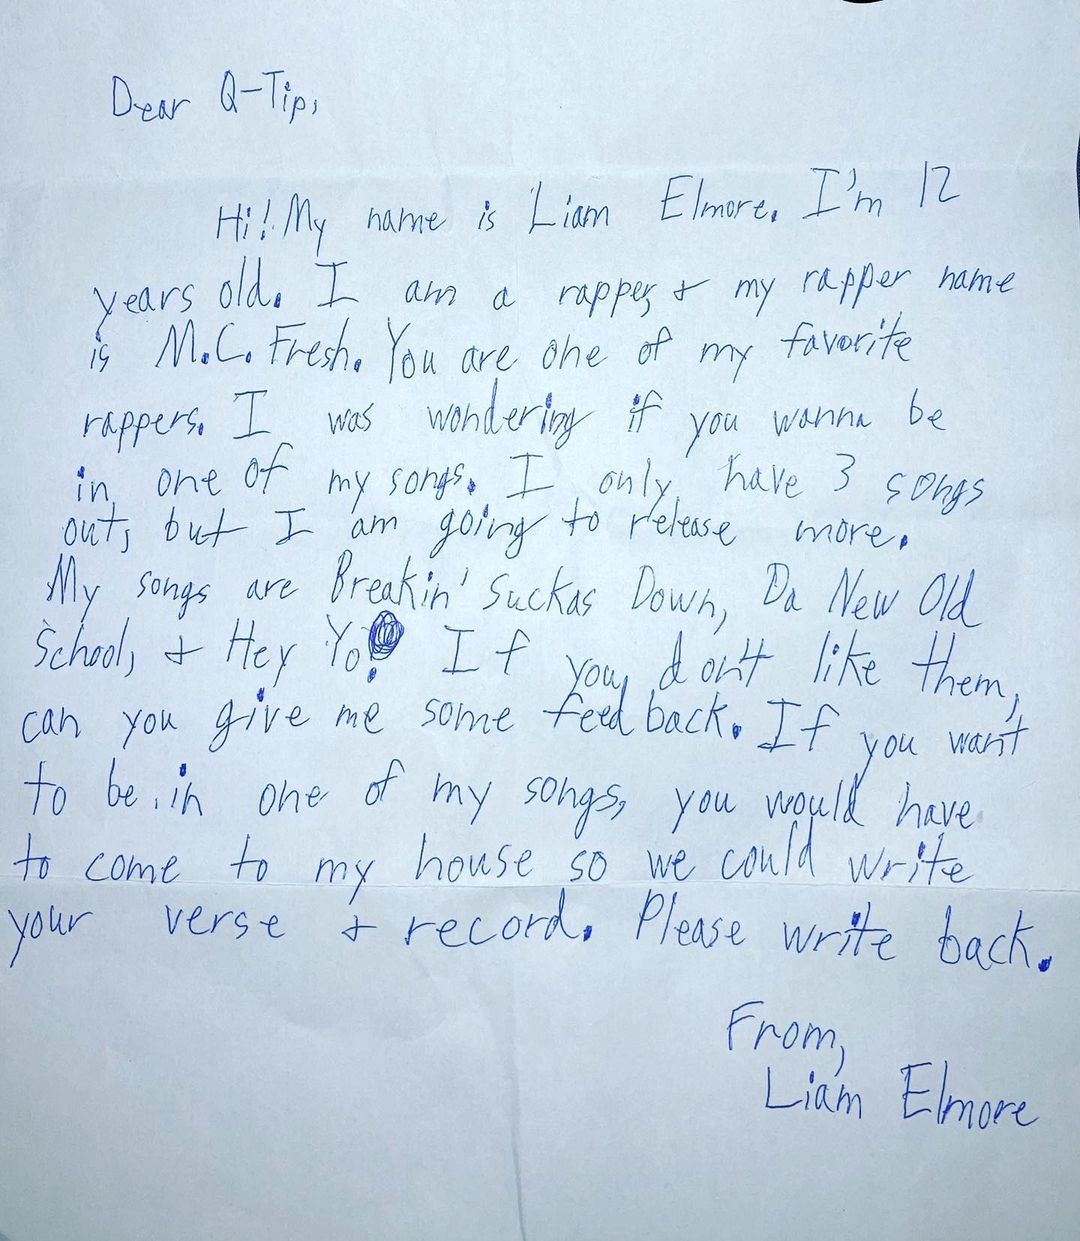 Dear Q-Tip,
Hi! My name is Liam Elmore. I'm 12
years old. I am a rapper, & my rapper name
is M.C. Fresh. You are one of my favorite
rappers. I was wondering if you wanna be
in one of my songs. I only have 3 songs
out, but I am going to release more.
My songs are Breakin' Suckas Down, Da New Old
School, & Hey Yo! If you don't like them,
can you give me some feedback. If you want
to be in one of my songs, you would have
to come to my house so we could write
your verse & record. Please write back.
From,
Liam Elmore